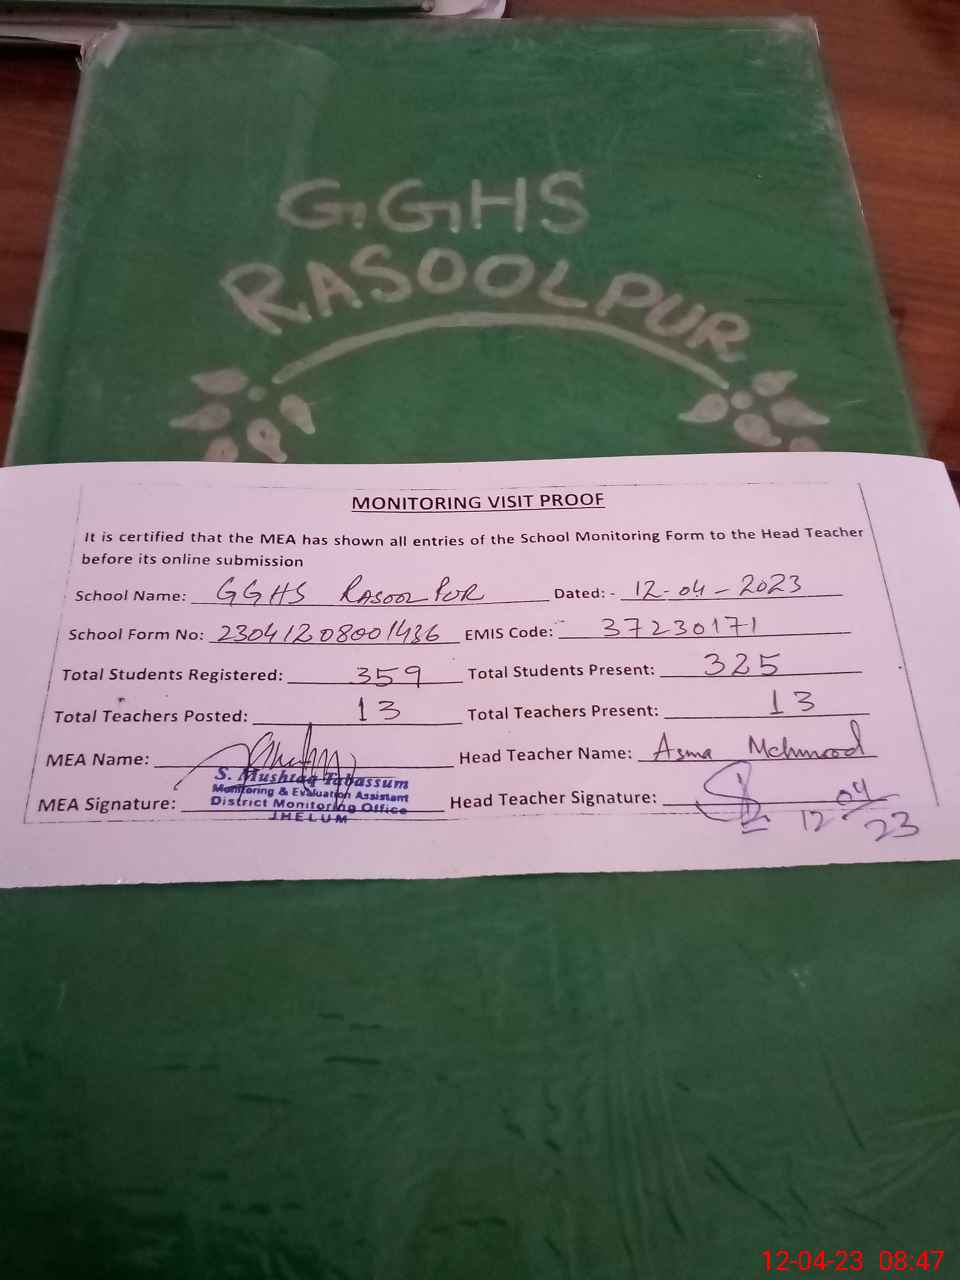 G.G.H.S
RASOOLPUR
MONITORING VISIT PROOF
It is certified that the MEA has shown all entries of the School Monitoring Form to the Head Teacher
before its online submission
School Name: GGHS RASOOL PUR Dated: - 12-04-2023
School Form No: 23041208001436 EMIS Code: 37230171
Total Students Registered: 359 Total Students Present: 325
Total Teachers Posted: 13 Total Teachers Present: 13
MEA Name: Head Teacher Name: Asma Mehmood
S. Mushtaq Tabassum
Monitoring & Evaluation Assistant
MEA Signature: District Monitoring Office Head Teacher Signature: 12 04 23
JHELUM
12-04-23 08:47